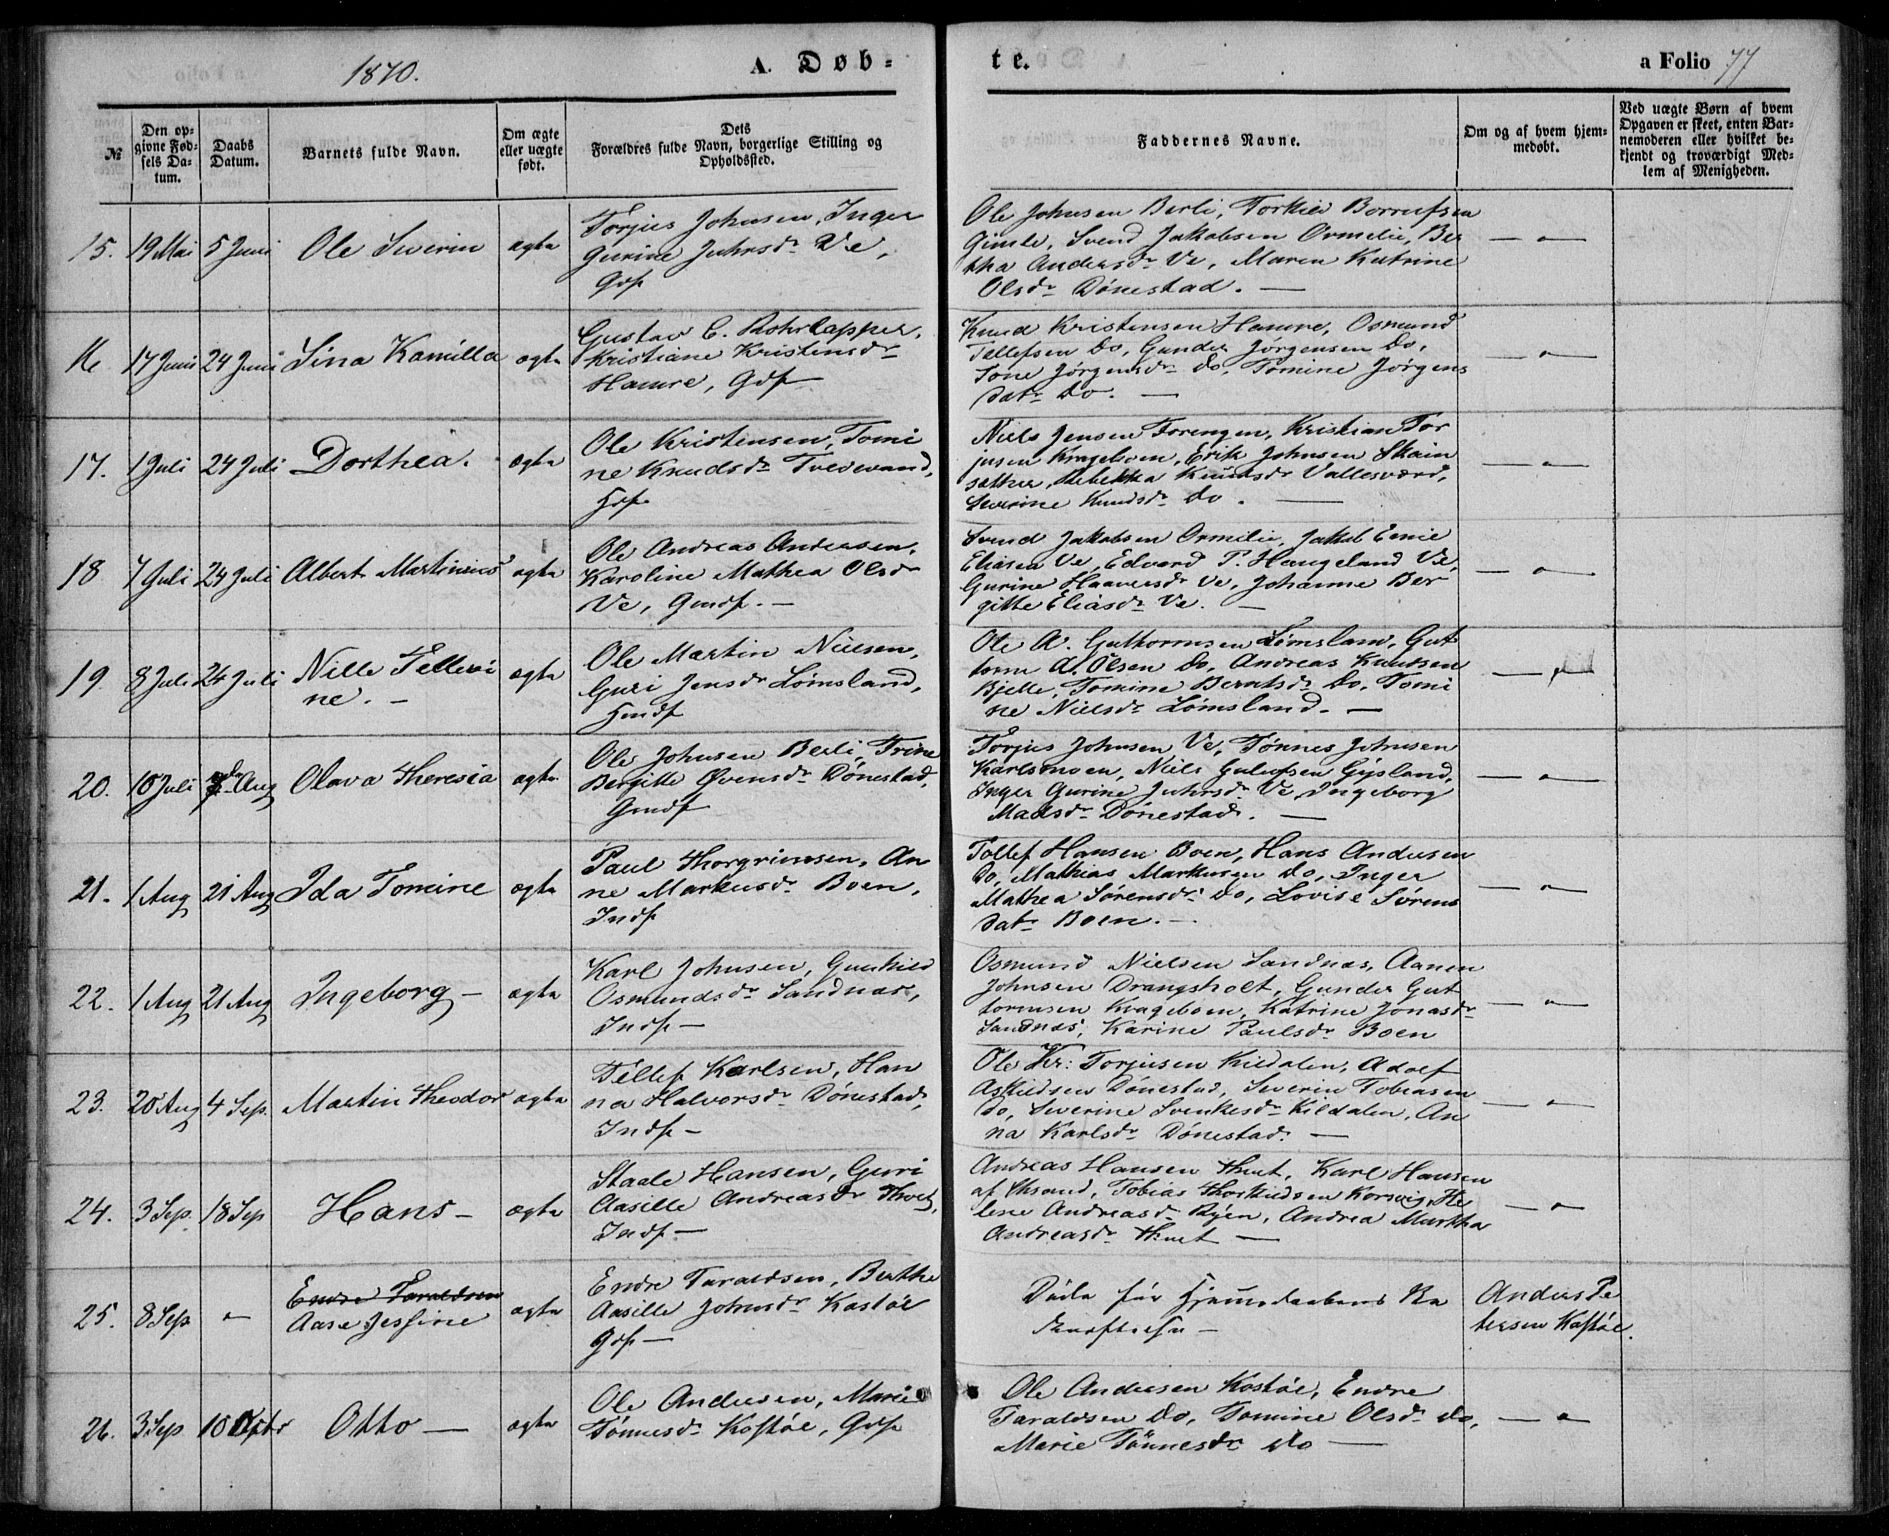 1870.
A. Døb-
te.
a Folio 77
№
Den op-
givne Fød-
sels Da-
tum.
Daabs
Datum.
Barnets fulde Navn.
Om ægte
eller uægte
født.
Dets
Forældres fulde Navn, borgerlige Stilling og
Opholdssted.
Faddernes Navne.
Om og af hvem hjem-
medøbt.
Ved uægte Børn af hvem
Opgaven er skeet, enten Bar-
nemoderen eller hvilket be-
kjendt og troværdigt Med-
lem af Menigheden.
15. 19 Mai 5 Juni Ole Severin ægte
Torjus Johnsen, Inger
Gurine Juhrsdr Ve,
Gdf
Ole Johnsen Berli, Torkild
Gimle, Svend Jakobsen Ormelie, Ber
tha Andersdr Ve, Maren Katrine
Olsdr Dønestad. —
— " —
16 17 Juni 24 Juni Sina Kamilla ægte
Gustav C. Rohrlapper,
Kristiane Kristensdr
Hamre, Gdf
Knud Kristensen Hamre, Osmund
Tellefsen Do, Gunder Jørgensen Do,
Tone Jørgensdr Do, Tomine Jørgens
datr Do. —
— " —
17. 1 Juli 24 Juli Dorthea. ægte
Ole Kristensen, Tomi
ne Knudsdr Tvedevand,
Hdf
Niels Jensen Forengen, Kristian Tor
jusen Krageboen, Erik Johnsen Skain
sæther, Rebekka Knudsdr Vallesværd,
Severine Knudsdr Do. —
— " —
18 7 Juli 24 Juli Albert Martinius ægte
Ole Andreas Andersen,
Karoline Mathea Olsdr
Ve, Gmdf. —
Svend Jakobsen Ormelie, Jakob Emil
Eliasen Ve, Edvard T. Haugeland Ve,
Gurine Haaversdr Ve, Johanne Ber
gitte Eliasdr Ve. —
— " —
19. 8 Juli 24 Juli Nille Tellevi
ne. —
ægte
Ole Martin Nielsen,
Guri Jensdr Lømsland,
Hmdf
Ole A. Guthormsen Lømsland, Gut
torm A. Olsen Do, Andreas Knudsen
Kjelle, Tomine Berntsdr Do, Tomi
ne Nielsdr Lømsland. —
20. 10 Juli Aug Olava Theresia ægte
Ole Johnsen Berli, Trine
Bergitte Øvensdr Dønestad,
Gmdf
Torjus Johnsen Ve, Tønnes Johnsen
Karlsmoen, Niels Gulufsen Gysland,
Inger Gurine Juhrsdr Ve, Ingeborg
Madsdr Dønestad. —
— " —
21. 1 Aug 21 Aug Ida Tomine ægte
Paul Thorgrimsen, An
ne Markusdr Boen,
Indf
Tollef Hansen Boen, Hans Andersen
Do, Mathias Markusen Do, Inger
Mathea Sørensdr Do, Lovise Sørens
datr Boen. —
— " —
22. 1 Aug 21 Aug Ingeborg — ægte
Karl Johnsen, Gunhild
Osmundsdr Sandnæs,
Indf —
Osmund Nielsen Sandnæs, Aanen
Johnsen Drangsholt, Gunder Gut
tormsen Krageboen, Katrine Jonasdr
Sandnæs, Karine Paulsdr Boen
— " —
23. 20 Aug 4 Sep. Martin Theodor ægte
Tellef Karlsen, Han
na Halvorsdr Dønestad,
Indf —
Ole Kr: Torjusen Kildalen, Adolf
Askildsen Dønestad, Severin Tobiasen
Do, Severine Svenkesdr Kildalen, An
na Karlsdr Dønestad. —
— " —
24. 3 Sep 18 Sep Hans — ægte
Staale Hansen, Guri
Aasille Andreasdr Thveit,
Indf —
Andreas Hansen Thveit, Karl Hansen
Tobias Thorkildsen Korsvig, He
lene Andreasdr Ryen, Andrea Martha
Andreasdr Thveit —
— " —
25. 8 Sep " Endre Taraldsen
Aase Jesfine
ægte
Endre Taraldsen, Berthe
Aasille Johnsdr Kostøl
Gdf —
Døde før Hjemmedaabens
Anders Pe
tersen Kostøl.
26. 3 Sep 10 Otto — ægte
Ole Andersen, Marie
Tønnesdr Kostøl, Gdf
Ole Andersen Kostøl, Endre
Taraldsen Do, Tomine Olsdr Do,
Marie Tønnesdr Do —
— " —